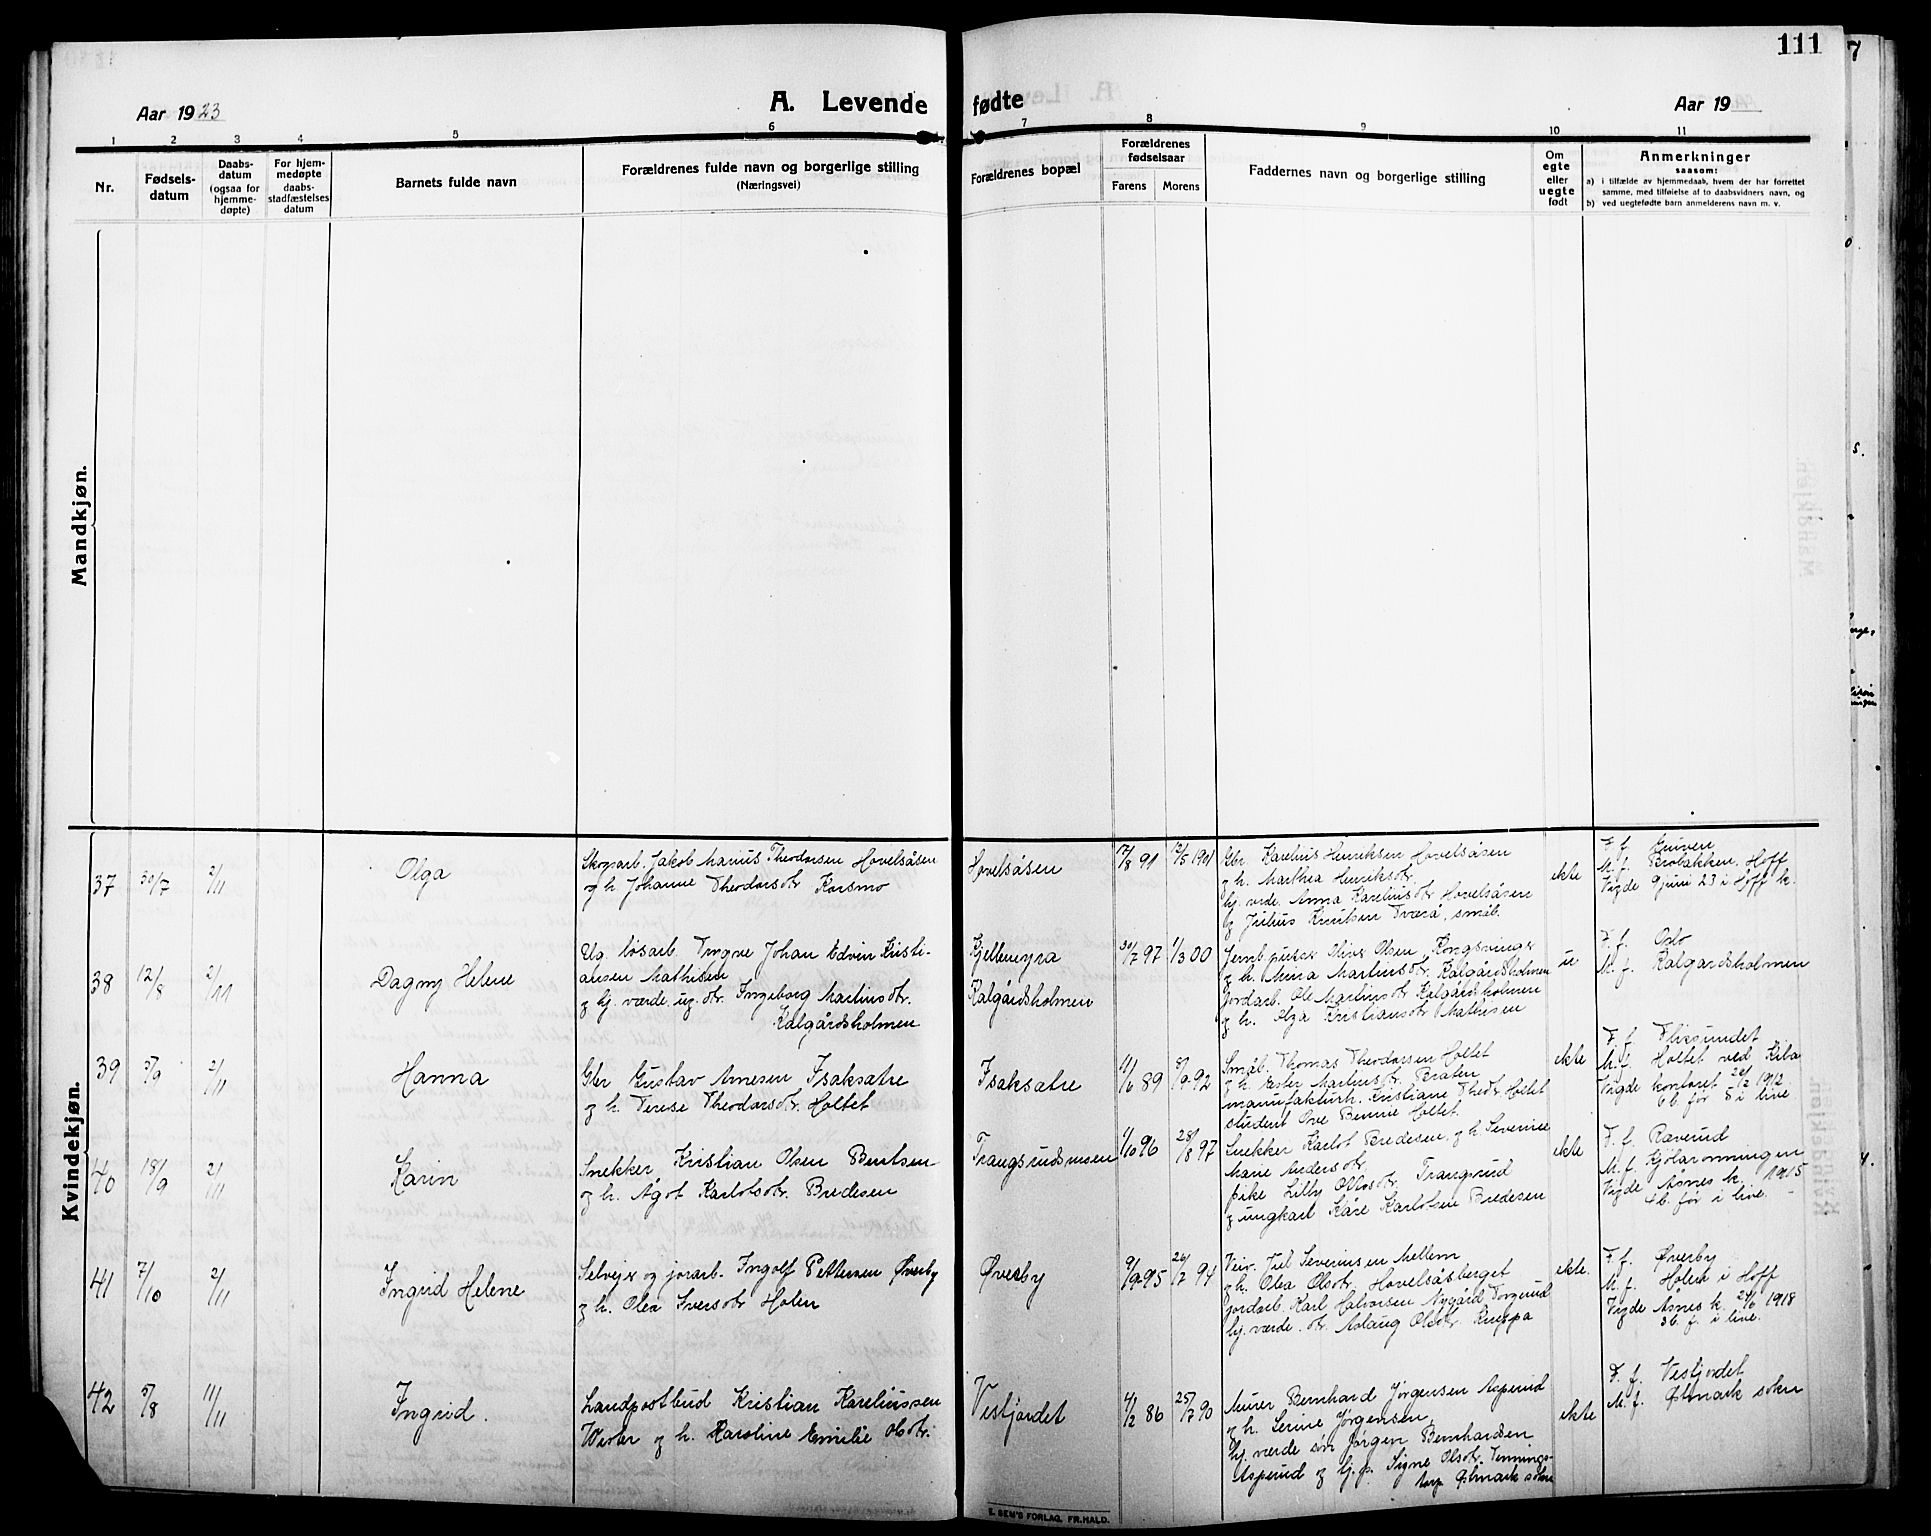 111
Aar 1923
A. Levende fødte
Aar 19
1 2 3 4 5 6 7 8 9 10 11
Nr.
Fødsels-
datum
Daabs-
datum
(ogsaa for
hjemme-
døpte)
For hjem-
medøpte
daabs-
stadfæstelses
datum
Barnets fulde navn
Forældrenes fulde navn og borgerlige stilling
(Næringsvei)
Forældrenes bopæl
Forældrenes
fødselsaar
Farens Morens
Faddernes navn og borgerlige stilling
Om
egte
eller
uegte
født
Anmerkninger
saasom:
a) i tilfælde av hjemmedaab, hvem der har forrettet
samme, med tilføielse af to daabsvidners navn, og
b) ved uegtefødte barn anmelderens navn m. v.
Mandkjøn.
Kvindekjøn.
37 30/7 2/11 Olga
Skogsarb. Jakob Marius Theodorsen Hovelsåsen
og h. Johanne Theodorsdtr. Korsmo
Hovelsåsen
17/8 91 12/5 1901
Gbr. Karelius Henriksen Hovelsåsen
og h. Marthea Henriksdtr.
hj. vrde. Anna Kareliusdtr Hovelsåsen
og Julius Knutsen Tverå, småb.
ekte
F. f. Gruven
M. f. Brobakken, Hoff
Vigde 9 juni 23 i Hoff k.
38 12/8 2/11 Dagny Helene
Ug. løsarb. Trygve Johan Edvin Kristi-
ansen Mathisen
og hj. værde. ug. dtr. Ingeborg Martinsdtr.
Kalgårdsholmen
Kjellemyra
Kalgårdsholmen
30/7 97 1/3 00
Jernb. pusser Oliver Olsen, Kongsvinger
og h. Mina Martinsdtr. Kalgårdsholmen
Jordarb. Ole Martinsdtr Kalgårdsholmen
og h. Olga Kristiansdtr Mathisen
u
F. f. Oslo
M. f. Kalgardsholmen
39 5/9 2/11 Hanna
Gbr Gustav Arnesen Isaksætre
og h. Terese Theodorsdtr. Holtet
Isaksætre
89 8/9 92
Småb. Thomas Theodorsen Holtet
og h. Ester Martinsdtr. Bråten
manufakturh. Kristiane Theodr. Holtet
student Ove Bennie Holtet
ekte
F. f. Flisundet
M. f. Holtet ved Kila
Vigde kontoret 26/2 1912
6b. før 5 i live
40 18/9 2/11 Karin
Snekker Kristian Olsen Berntsen
og h. Ågot Karlotsdtr. Bredesen
Trangsrudsmoen
1/10 96 28/8 97
Snekker Karlot Bredesen, og h. Severine
Marie Andersdtr
pike Lilly Olsdtr. Trangsrud
og ungkarl Kåre Karlotsen Bredesen
ekte
F. f. Baverud
M. f. Kjølaronningen
Vigde Åsnes k. 1915
4b. før i live
41 7/10 2/11 Ingrid Helene
Selveier og jorarb. Ingolf Pettersen Øverby
og h. Olea Iversdtr Holen
Øverby
9/9 95 26/2 94
Veiv. Juel Severinsen Mellem
og h. Olea Olsdtr. Hovelsåsberget
jordarb. Karl Halvorsen Nygård Torgerud
hj. værde. dtr. Aslaug Olsdtr. Knappa
ekte.
F. f. Øverby
M. f. Holen i Hoff
Vigde Åsnes k. 24/6 1918
3b. f. i live.
42 5/8 11/11 Ingrid.
Landpostbud Kristian Kareliussen
Wister og h. Karoline Emilie Olsdtr.
Vestjordet
4/2 86 25/7 90
Murer Bernhard Jørgensen Asperud
og h. Serine Jørgensen,
hj. værde søn Jørgen Bernhardsen
Asperud og hj. p. Signe Olsdtr. Tennings-
torp Østmark sokn
ekte
F. f. Vestjordet
M. f. Østmark sokn
E. SEM'S FORLAG. FR.HALD.